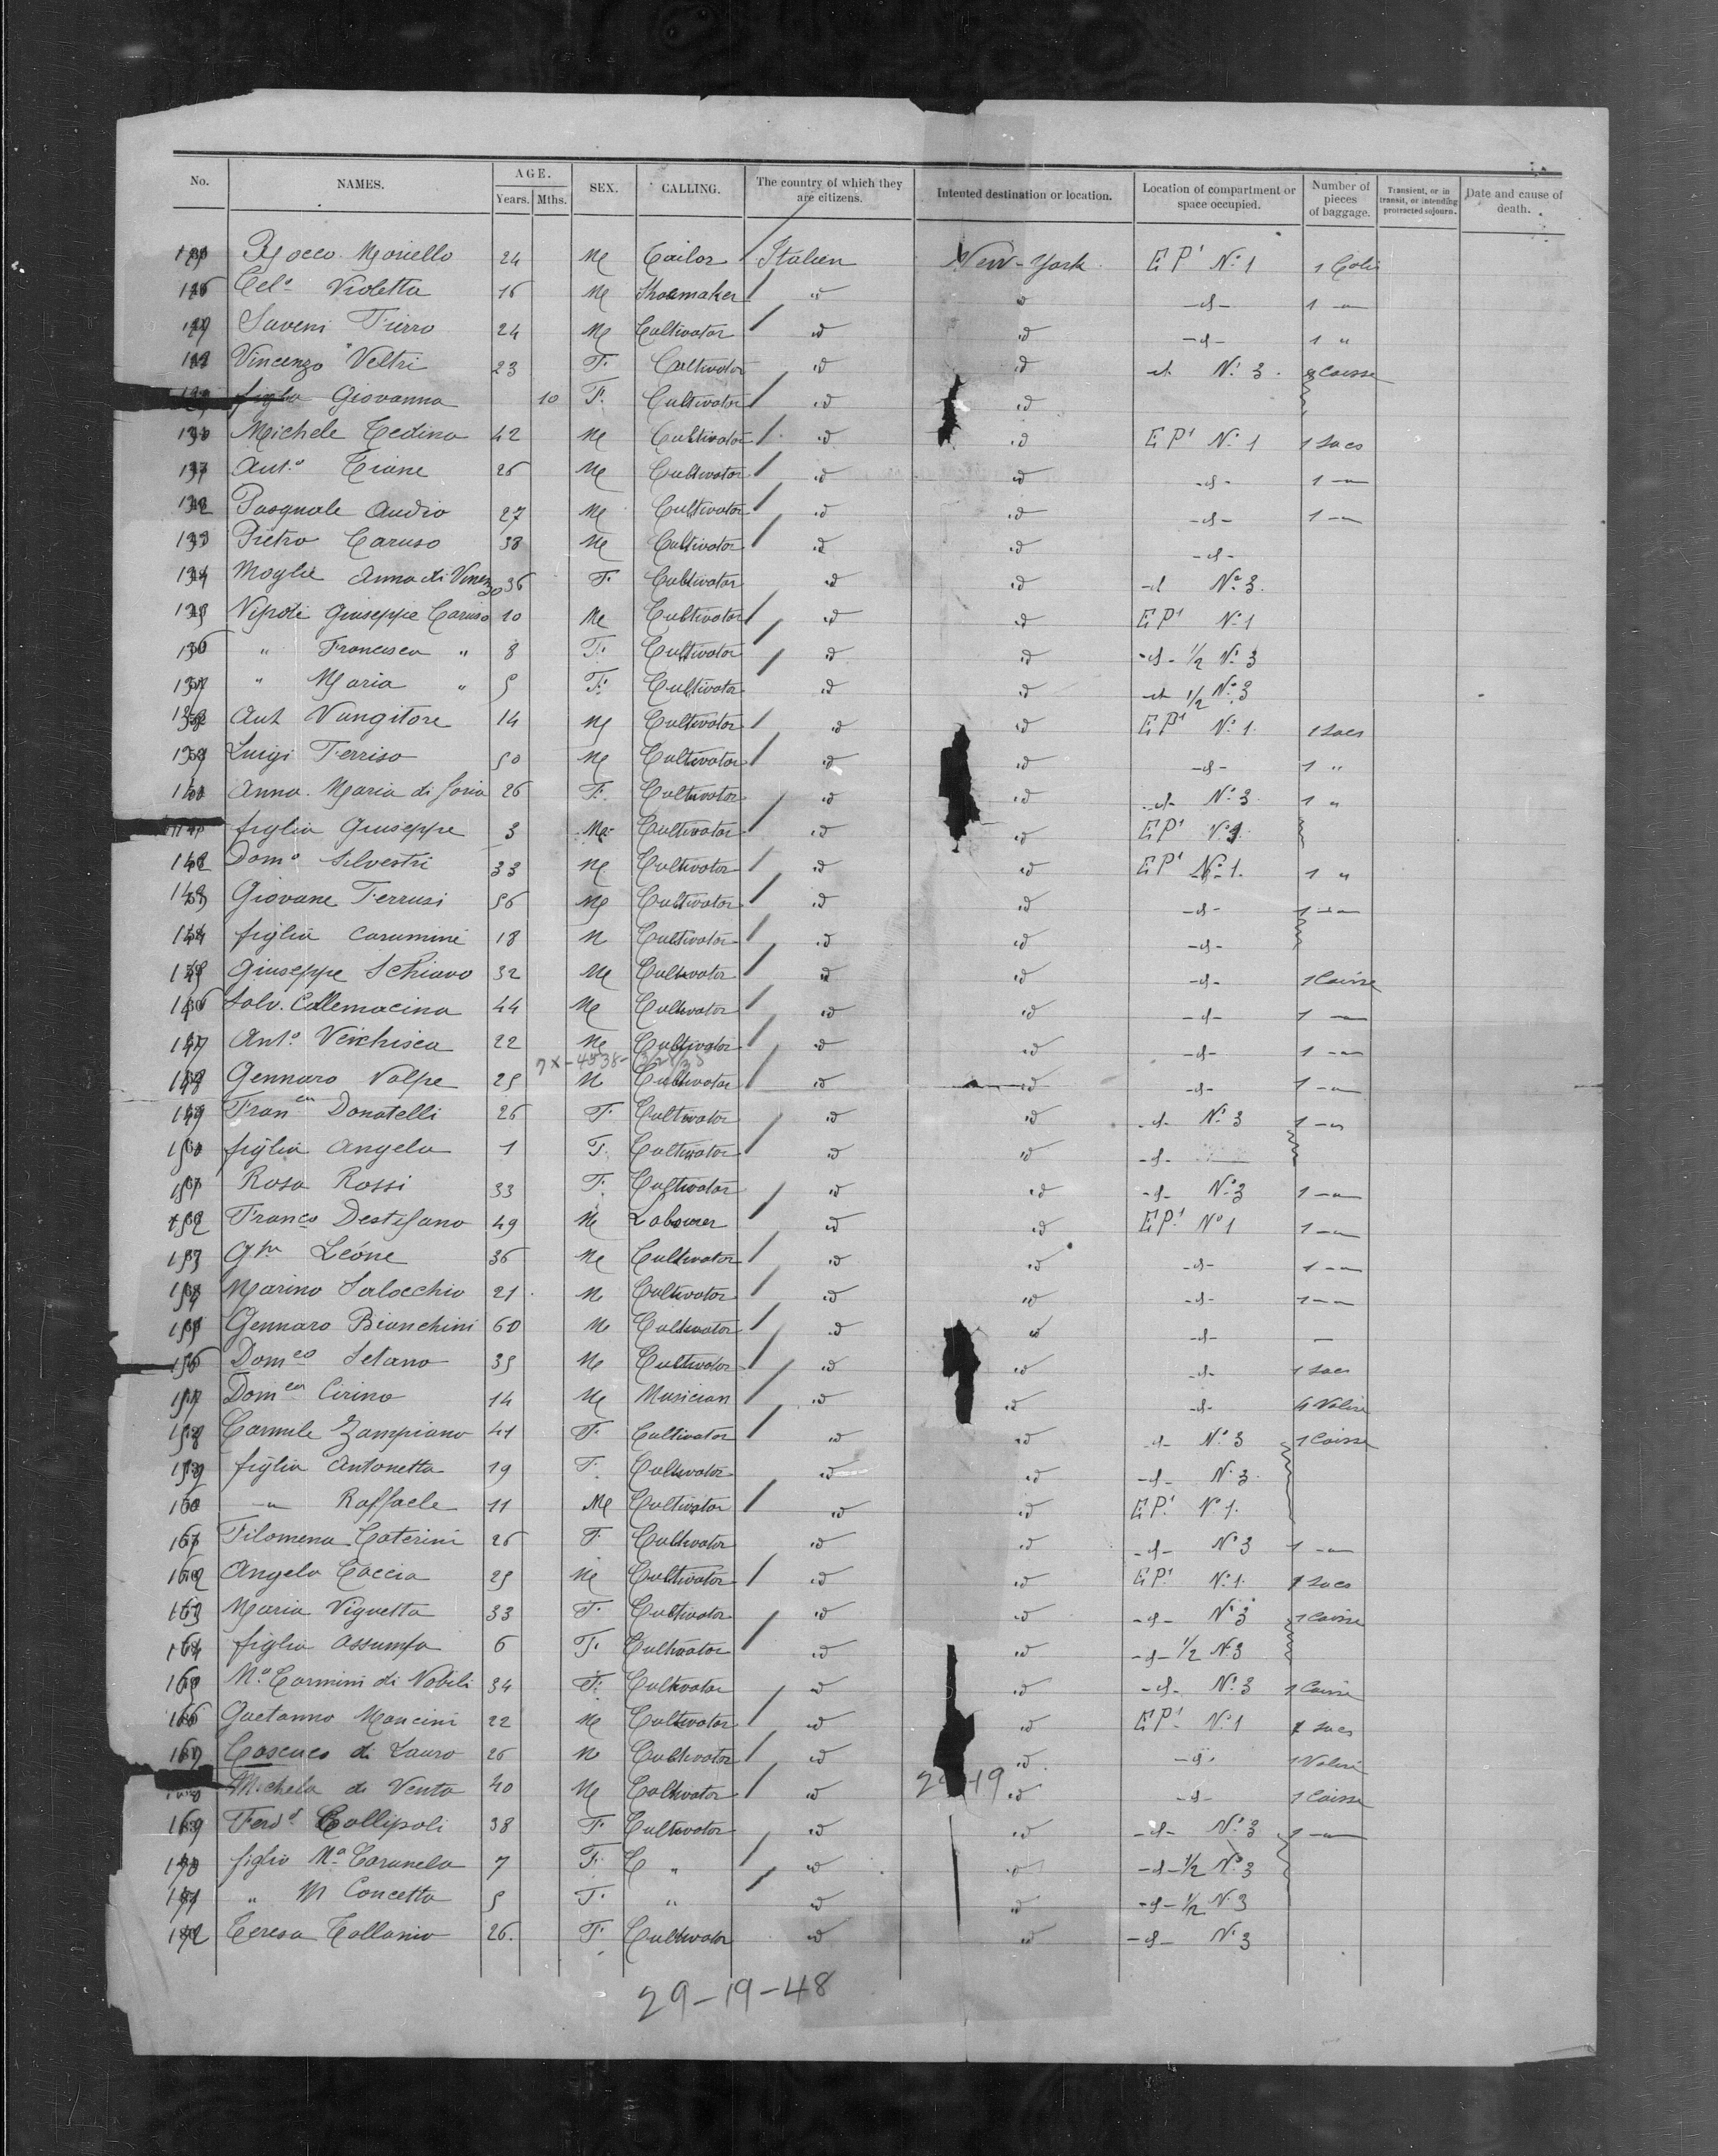 No. NAMES. AGE. Years. Mths. SEX. CALLING. The country of which they are citizens. Intented destination or location. Location of compartment or space occupied. Number of pieces of baggage. Transient, or in transit, or intending protracted sojourn. Date and cause of death.
Rocco Moriello 24 M Tailor Italien New-York EP1 No 1 1 Colis
126 Celo Violetta 16 M Shoemaker " id -d- 1 -"
Saveni Fierro 24 M Cultivator id id -d- 1 "
Vincenzo Veltri 23 F. Cultivator id id -d- No 3. Caisse
figlia Giovanna 10 F. Cultivator id id
130 Michele Tedino 42 M Cultivator id id EP1 No 1 1 Sacs
Anto Tiane 26 M Cultivator id id -d- 1 -"
132 Pasquale Audio 27 M Cultivator id id -d- 1 -"
133 Pietro Caruso 38 M Cultivator id id -d-
134 Moglie Anna di Vincenzo 36 F. Cultivator id id -d No 3.
135 Nipote Giuseppe Caruso 10 M Cultivator id id EP1 No 1
136 " Francesca " 8 F. Cultivator id id -d- 1/2 No 3
137 " Maria " 5 F. Cultivator id id -d- 1/2 No 3
138 Ant Vungitore 14 M Cultivator id id EP1 No 1. 1 Sacs
139 Luigi Ferriso 50 M Cultivator id id -d- 1 "
140 Anna Maria di Soria 26 F. Cultivator id id -d- No 3. 1 "
figlia Giuseppe 3 M Cultivator id id EP1
142 Domo Silvestri 33 M Cultivator id id EP1 No 1. 1 "
143 Giovane Ferrusi 56 M Cultivator id id -d- 1 -"
144 figlia Carumine 18 M Cultivator id id -d-
145 Giuseppe Schiavo 32 M Cultivator id id -d- 1 Caisse
146 Salv. Collemacina 44 M Cultivator id id -d- 1 -"
147 Anto Veichisca 22 M Cultivator id id -d- 1 -"
148 Gennaro Volpe 25 M Cultivator id id -d- 1 -"
149 Franca Donatelli 26 F. Cultivator id id -d- No 3 1 -"
150 figlia Angela 1 F. Cultivator id id -d-
151 Rosa Rossi 33 F. Cultivator id id -d- No 3 1 -"
152 Franco Destefano 49 M Labourer id id EP1 No 1 1 -"
153 Gpe Leóne 36 M Cultivator id id -d- 1 -"
154 Marino Salocchio 21 M Cultivator id id -d- 1 -"
155 Gennaro Bianchini 60 M Cultivator id id -d- —
156 Domco Setano 35 M Cultivator id id -d- 1 Sacs
157 Domca Cirino 14 M Musician id id -d- Valise
158 Carmile Zampiano 41 F. Cultivator id id -d- No 3 1 Caisse
159 figlia Antonetta 19 F. Cultivator id id -d- No 3.
160 -" Raffaele 11 M Cultivator id id EP1 No 1.
161 Filomena Caterini 26 F Cultivator id id -d- No 3 1 -"
162 Angelo Caccia 25 M Cultivator id id EP1 No 1. Sacs
163 Maria Vignetta 33 F. Cultivator id id -d- No 3 1 Caisse
164 figlia Assumta 6 F. Cultivator id id -d- 1/2 No 3
165 Ma Carmini di Nobili 34 F. Cultivator id id -d- No 3 1 Caisse
166 Gaetanno Mancini 22 M Cultivator id id EP1 No 1 Sacs
167 di Lauro 26 M Cultivator id id -d- 1 Valise
Michela de Venta 40 M Cultivator id id -d- 1 Caisse
169 Ferdo Collipoli 38 F. Cultivator id id -d- No 3 1 -"
170 figlia Ma Caranela 7 F. C " id id -d- 1/2 No 3
171 " M Concetta 5 F. " id id -d- 1/2 No 3
172 Teresa Tollanio 26. F. Cultivator id id -d- No 3
29-19-48